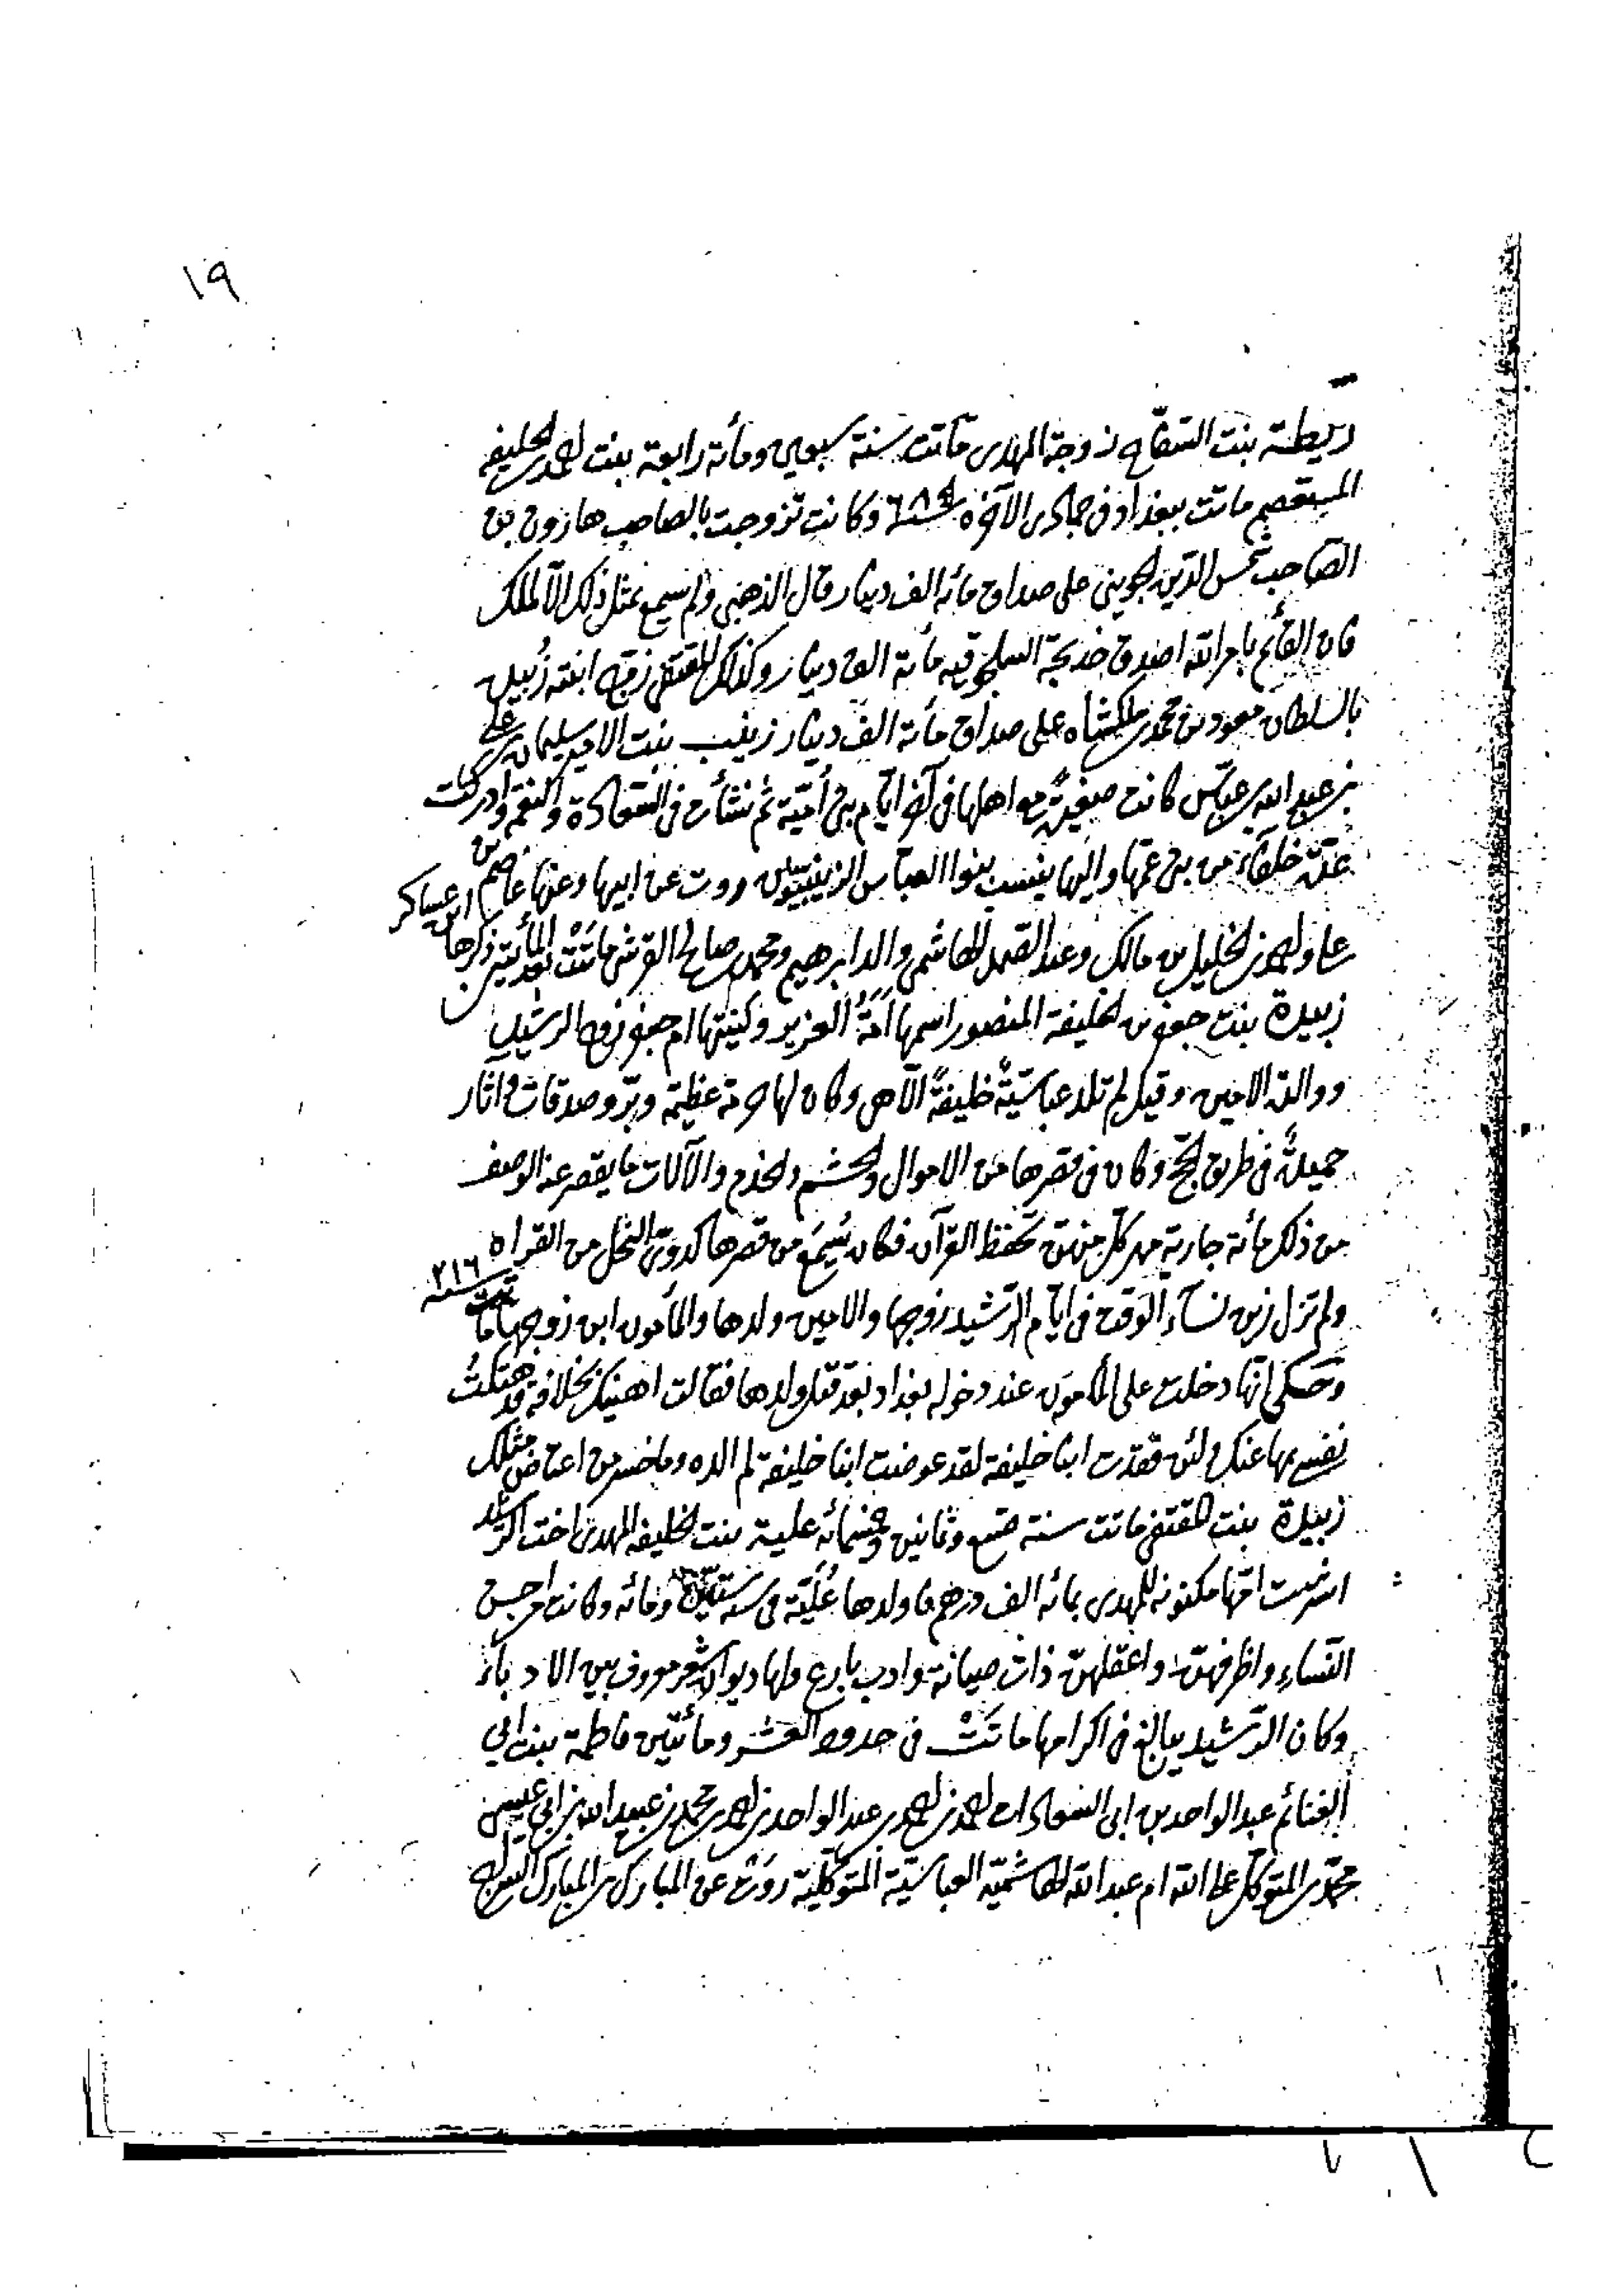 ١٩
ريطة بنت السفّاح زوجة المهدى ماتت سنة سبعين ومأة رابعة بنت احمد بن الخليفه
المستعصم ماتت ببغداد فى جمادى الآخرة سنة وكانت تزوجت بالصاحب هارون بن
الصّاحب شمس الدّين الجوينى على صداق مائه الف دينار قال الذهبى ولم يسمع بمثل ذلك الّا لملك
فان القائم بامر الله اصدق خديجة السلجوقيه مائة الف دينار وكذلك المقتفى زوّج ابنته زُبيدة
بالسلطان مسعود بن محمد بن ملكشاه على صداق مائة الف دينار زينب بنت الامير سليمان بن على
بن عبد الله بن عبّاس كانت صغيرةً مع اهلها فى آخر ايّام بنى أميّة ثم نشأت فى السّعادة والنعم وادركت
عدّة خلفاء من بنى عمّها واليها ينسب بنوا العباس الزينبيّون روت عن ابيها وعنها عاصم بن
على واحمد بن الخليل بن مالك وعبد الصّمد الهاشمى والد ابرهيم ومحمد بن صالح القرشى ماتَتْ بعد المأتين ذكرها ابن عساكر
زبيدة بنت جعفر بن الخليفة المنصور اسمها أمَةُ العزيز وكنيتها ام جعفر زوج الرشيد
ووالدة الامين وقيل لم تلد عباسيّةٌ خليفةً الّا هى وكان لها حرمة عظيمة وبرّ وصدقات وآثار
جميلةٌ فى طريق الحجّ وكان فى قصرها من الاموال والحشم والخدم والآلات ما يقصر عنه الوصف
من ذلك مائة جارية كلّ منهنّ تحفظ القرآن فكان يُسْمَع من قصرها كدوىّ النّحل من القراه
ولم تزل زين نسآء الوقت فى ايّام الرّشيد زوجها والامين ولدها والمأمون ابن زوجها ماتت سنه ٢١٦
وحكى انّها دخلت على المأمون عند دخوله بغداد بعد قتل ولدها فقالت اهنيك بخلافة قد هنّئتُ
نفسى بها عنك ولئن فقدت ابنا خليفة لقد عوضت ابنا خليفة لم الده وما خسر من اعتاض مثلك
زبيدة بنت المقتفى ماتت سنة تسع وثمانين وخمسمائه علية بنت الخليفه المهدى اخت الرشيد
اشتريت امّها مكنونه للمهدى بمائه الف درهم فاولدها عُلَيّة فى سنه ستّين ومائه وكانت من احسن
النّساء واظرفهنّ واعقلهنّ ذات صيانة وادب بارع ولها ديوان شعر معروف بين الادباء
وكان الرّشيد يبالغ فى اكرامها ماتَتْ فى حدود العشر ومائتين فاطمة بنت ابي
الغنائم عبد الواحد بن ابى السّعادات احمد بن احمد بن عبد الواحد بن احمد بن محمد بن عبيد الله بن ابي عيسى
محمّد بن المتوكّل على الله ام عبد الله الهاشميّة العباسيّة المتوكّليّة روَتْ عن المبارك بن المبارك السراج